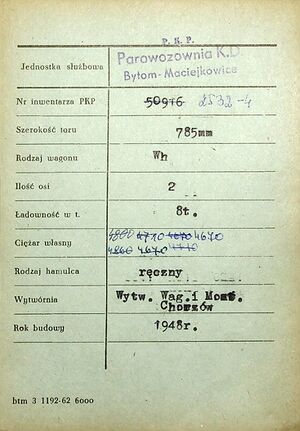 P. K. P.
Jednostka służbowa Parowozownia K.D.
Bytom-Maciejkowice
Nr inwentarza PKP 50916 2532-4
Szerokość toru 785mm
Rodzaj wagonu Wh
Ilość osi 2
Ładowność w t. 8t.
Ciężar własny 4800 4710 4670 4670
4860 4670 4710
Rodzaj hamulca ręczny
Wytwórnia Wytw. Wag.i Most.
Chorzów
Rok budowy 1948r.
htm 3 1192-62 6000